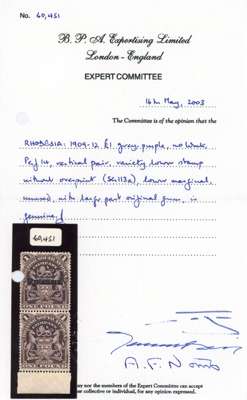 No. 60,451
B. P. A. Expertising Limited
London - England
EXPERT COMMITTEE
16th May, 2003
The Committee is of the opinion that the
RHODESIA: 1909-12 £1 grey-purple, no wmk,
Perf 14, vertical pair, variety lower stamp
without overprint (SG113a), lower marginal,
unused, with large part original gum, is
genuine.
60,451
A. F. Norris
may nor the members of the Expert Committee can accept
or collective or individually, for any opinion expressed.